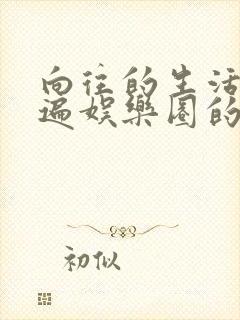 向往的生活
遍娱乐圈的
初似